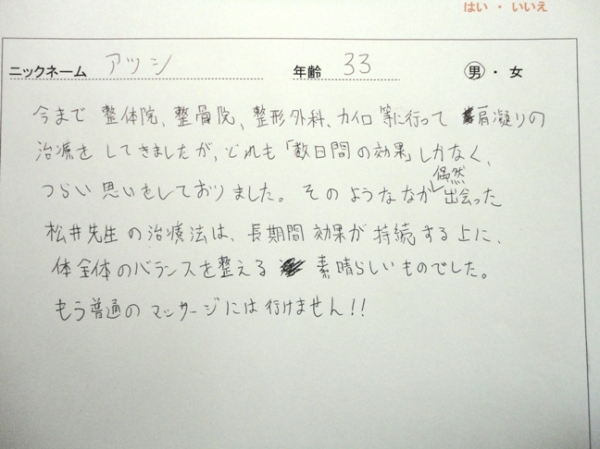 はい・いいえ
ニックネーム アツシ 年齢 33 男・女
今まで 整体院、整骨院、整形外科、カイロ等に行って 肩凝りの
治療をしてきましたが、どれも「数日間の効果」しかなく、
つらい思いをしておりました。そのようななか偶然出会った
松井先生の治療法は、長期間効果が持続する上に、
体全体のバランスを整える 素晴らしいものでした。
もう普通のマッサージには行けません!!